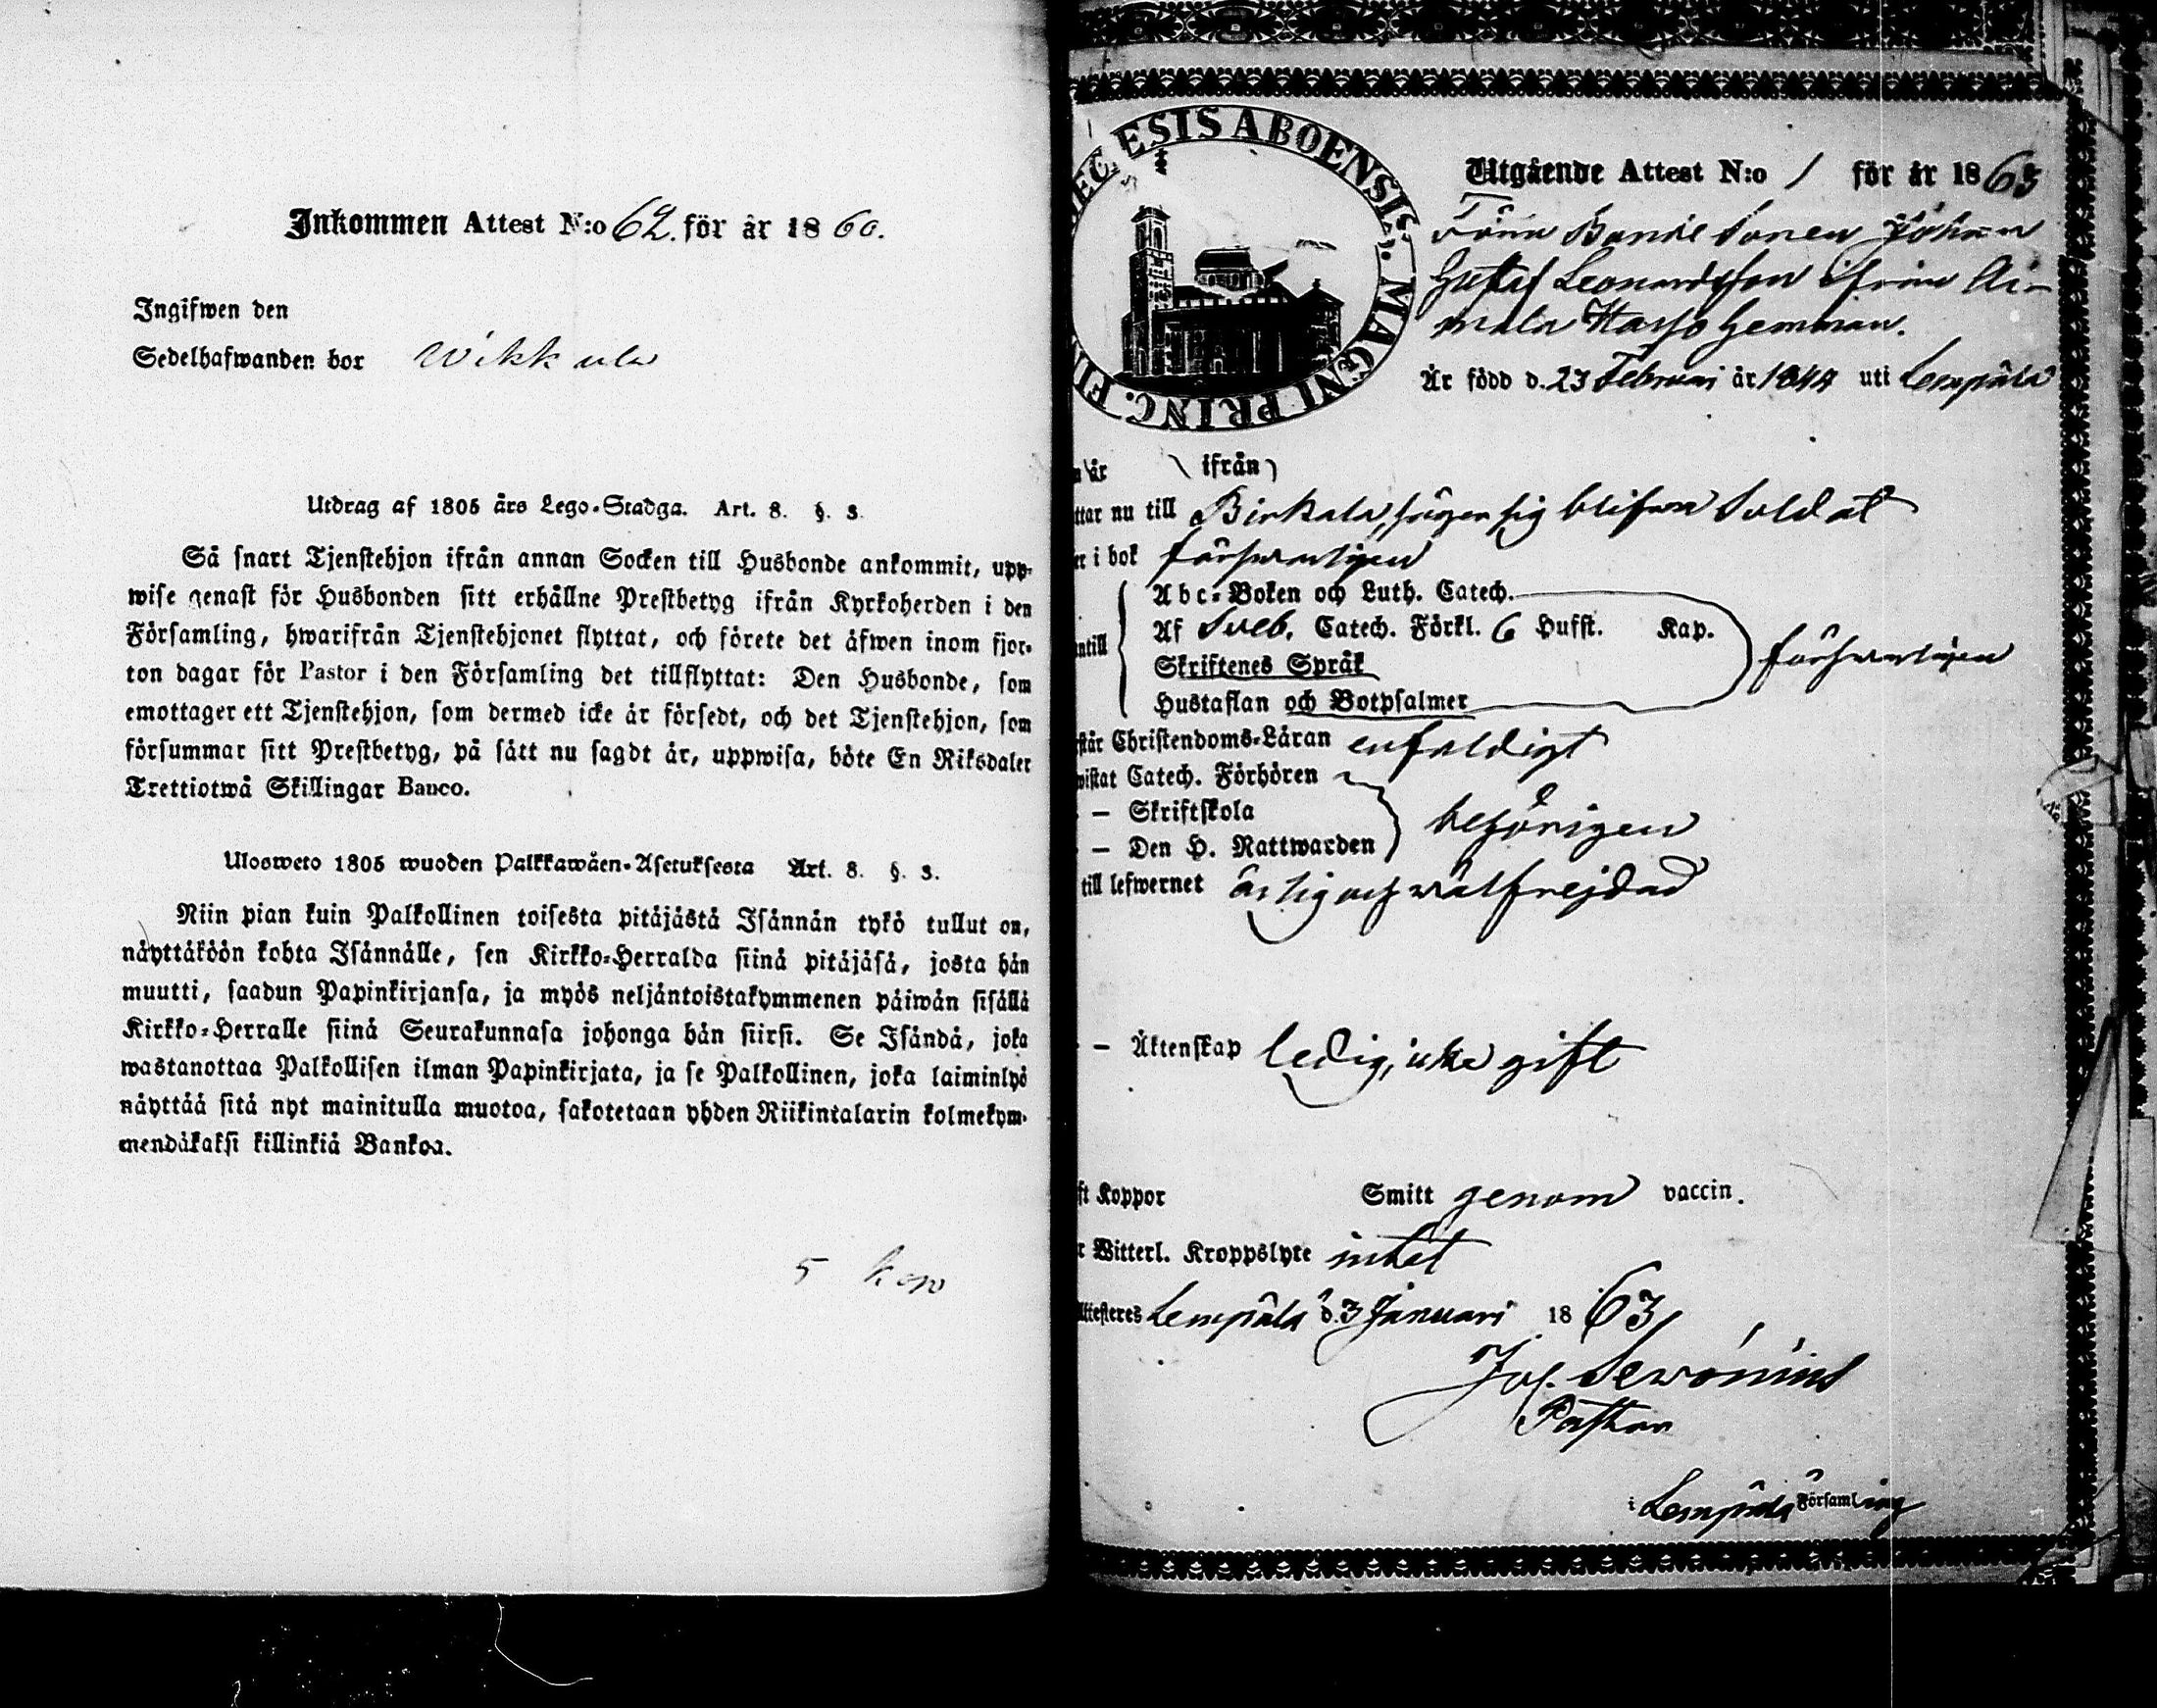 Inkommen Attest N:o 62. för år 1860.
Ingifwen den
Sedelhafwanden bor Wikkula
Utdrag af 1805 års Lego-Stadga. Art. 8. §. 3.
Så snart Tjenstehjon ifrån annan Socken till Husbonde ankommit, upp-
wise genast för Husbonden sitt erhållne Prestbetyg ifrån Kyrkoherden i den
Församling, hwarifrån Tjenstehjonet flyttat, och förete det äfwen inom fjor-
ton dagar för Pastor i den Församling det tillflyttat: Den Husbonde, som
emottager ett Tjenstehjon, som dermed icke är försedt, och det Tjenstehjon, som
försummar sitt Prestbetyg, på sätt nu sagdt är, uppwisa, böte En Riksdaler
Trettiotwå Skillingar Banco.
Ulosweto 1805 wuoden Palkkawäen-Asetuksesta Art. 8. §. 3.
Niin pian kuin Palkollinen toisesta pitäjästä Isännän tykö tullut on,
näyttäköön kohta Isännälle, sen Kirkko-Herralda siinä pitäjäsä, josta hän
muutti, saadun Papinkirjansa, ja myös neljäntoistakymmenen päiwän sisällä
Kirkko-Herralle siinä Seurakunnasa johonga hän siirsi. Se Isändä, joka
wastanottaa Palkollisen ilman Papinkirjata, ja se Palkollinen, joka laiminlyö
näyttää sitä nyt mainitulla muotoa, sakotetaan yhden Riikintalarin kolmekym-
mendäkaksi killinkiä Bankoa.
5 kop
ESIS ABOENSIS. MAGNI PRINC. FIN
Utgående Attest N:o 1 för år 1863
Bonde Sonen Johan
Gustaf Leonardsson ifrån Ai-
mala Harjo hemman.
Är född d. 23 Februari år 1844 uti Lempälä
är ifrån
ttar nu till Birkala, säger sig blifwa Soldat
er i bok försvarligen
Abc-Boken och Luth. Catech.
Af Sveb. Catech. Förkl. 6 Hufst. Kap.
ntill
Skriftenes Språk
försvarligen
Hustaflan och Botpsalmer
står Christendoms-Läran enfaldigt
wistat Catech. Förhören
— Skriftskola
behörigen
— Den H. Nattwarden
till lefwernet ärlig och wälfrejdad
— Äktenskap ledig, icke gift
ft Koppor Smitt genom vaccin.
r Witterl. Kroppslyte intet
Attesteres Lempälä d. 3 Januari 1863,
Jos.
Pastor
i Lempälä Församling